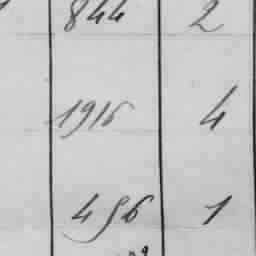 844 2
1916 4
496 1